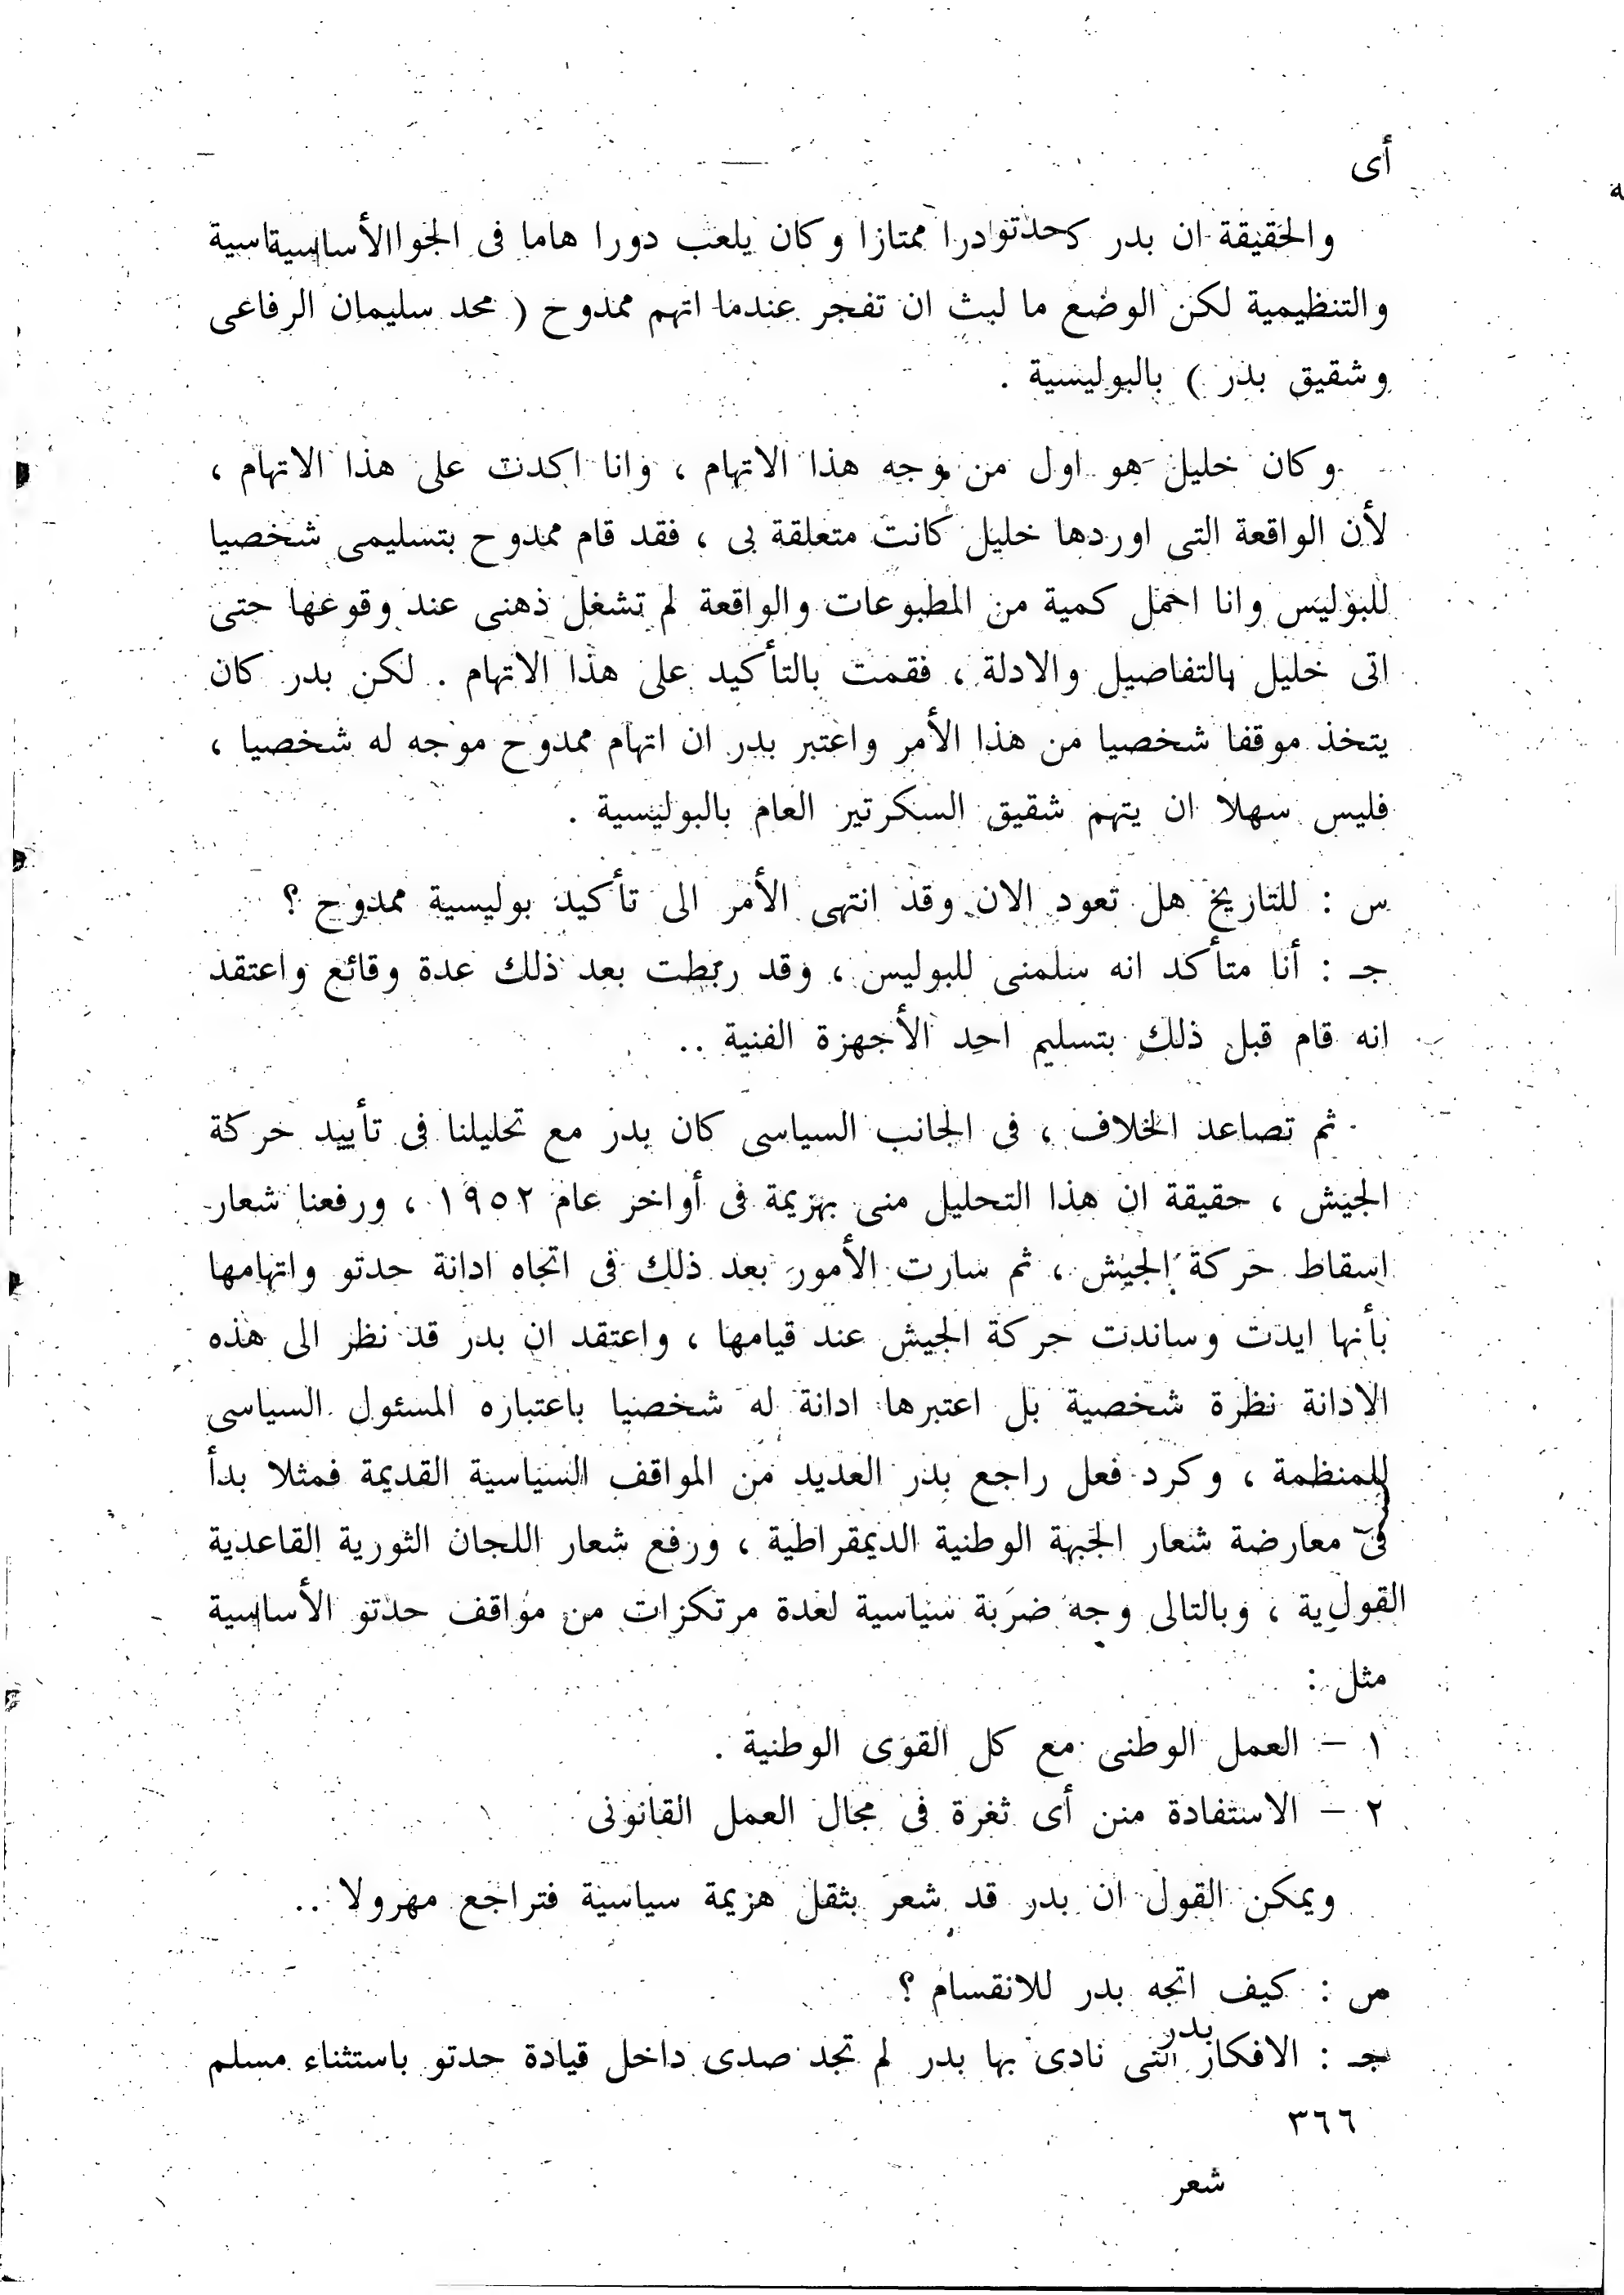 أى
والحقيقة ان بدر كحدتوادرا ممتازا وكان يلعب دورا هاما فى الجواالأساسيةاسية
والتنظيمية لكن الوضع ما لبث ان تفجر عندما اتهم ممدوح ( محمد سليمان الرفاعى
وشقيق بدر ) بالبوليسية .
وكان خليل هو اول من وجه هذا الاتهام ، وانا اكدت على هذا الاتهام ،
لأن الواقعة التى اوردها خليل كانت متعلقة بى ، فقد قام ممدوح بتسليمى شخصيا
للبوليس وانا احمل كمية من المطبوعات والواقعة لم تشغل ذهنى عند وقوعها حتى
اتى خليل بالتفاصيل والادلة ، فقمت بالتأكيد على هذا الاتهام . لكن بدر كان
يتخذ موقفا شخصيا من هذا الأمر واعتبر بدر ان اتهام ممدوح موجه له شخصيا ،
فليس سهلا ان يتهم شقيق السكرتير العام بالبوليسية .
س : للتاريخ هل تعود الان وقد انتهى الأمر الى تأكيد بوليسية ممدوح ؟
جـ : أنا متأكد انه سلمنى للبوليس ، وقد ربطت بعد ذلك عدة وقائع واعتقد
انه قام قبل ذلك بتسليم احد الأجهزة الفنية ..
ثم تصاعد الخلاف ، فى الجانب السياسى كان بدر مع تحليلنا فى تأييد حركة
الجيش ، حقيقة ان هذا التحليل منى بهزيمة فى أواخر عام ١٩٥٢ ، ورفعنا شعار
اسقاط حركة الجيش ، ثم سارت الأمور بعد ذلك فى اتجاه ادانة حدتو واتهامها
بأنها ايدت وساندت حركة الجيش عند قيامها ، واعتقد ان بدر قد نظر الى هذه
الادانة نظرة شخصية بل اعتبرها ادانة له شخصيا باعتباره المسئول السياسى
للمنظمة ، وكرد فعل راجع بدر العديد من المواقف السياسية القديمة فمثلا بدأ
فى معارضة شعار الجبهة الوطنية الديمقراطية ، ورفع شعار اللجان الثورية القاعدية
القولية ، وبالتالى وجه ضربة سياسية لعدة مرتكزات من مواقف حدتو الأساسية
مثل :
١ – العمل الوطنى مع كل القوى الوطنية .
٢ – الاستفادة منن أى ثغرة فى مجال العمل القانونى
ويمكن القول ان بدر قد شعر بثقل هزيمة سياسية فتراجع مهرولا ..
س : كيف اتجه بدر للانقسام ؟
بدر
جـ : الافكار التى نادى بها بدر لم تجد صدى داخل قيادة حدتو باستثناء مسلم
٣٦٦
شعر